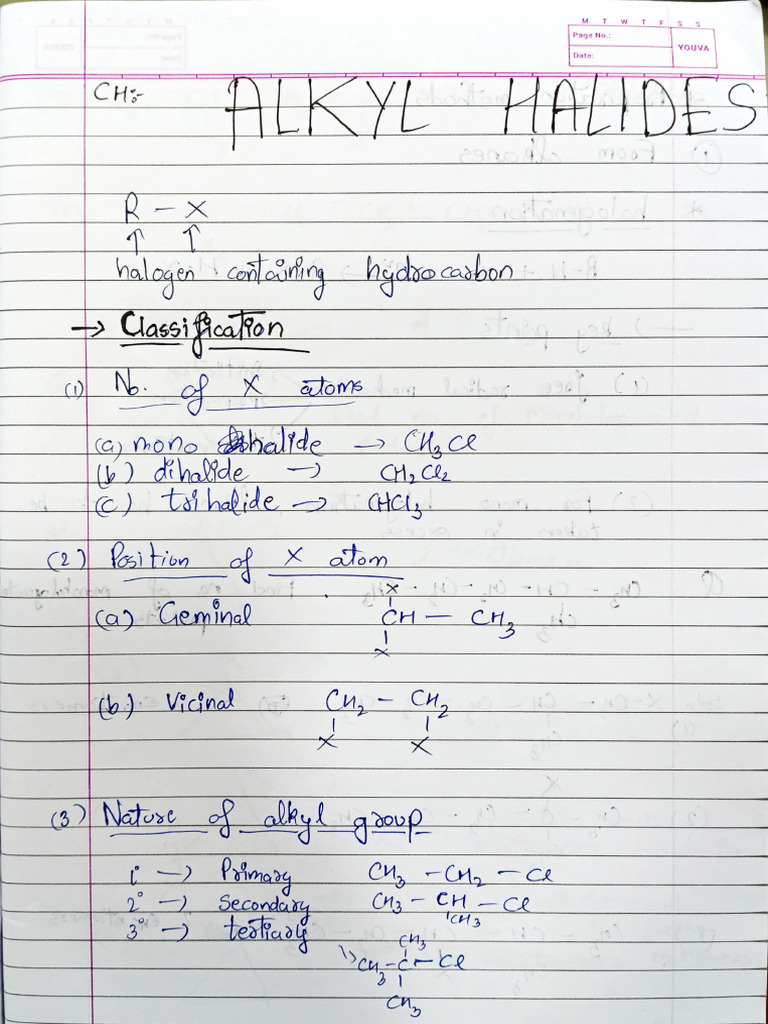 M T W T F S S
Page No.:
Date:
YOUVA
CH:-
ALKYL HALIDES
R - X
↑ ↑
halogen containing hydrocarbon
→ Classification
(1) No. of X atoms
(a) mono halide → CH3Cl
(b) dihalide → CH2Cl2
(c) trihalide → CHCl3
(2) Position of X atom
X
(a) Geminal CH - CH3
X
(b) Vicinal CH2 - CH2
X X
(3) Nature of alkyl group
1° → Primary CH3 - CH2 - Cl
2° → Secondary CH3 - CH - Cl
CH3
3° → tertiary
CH3
CH3 - C - Cl
CH3